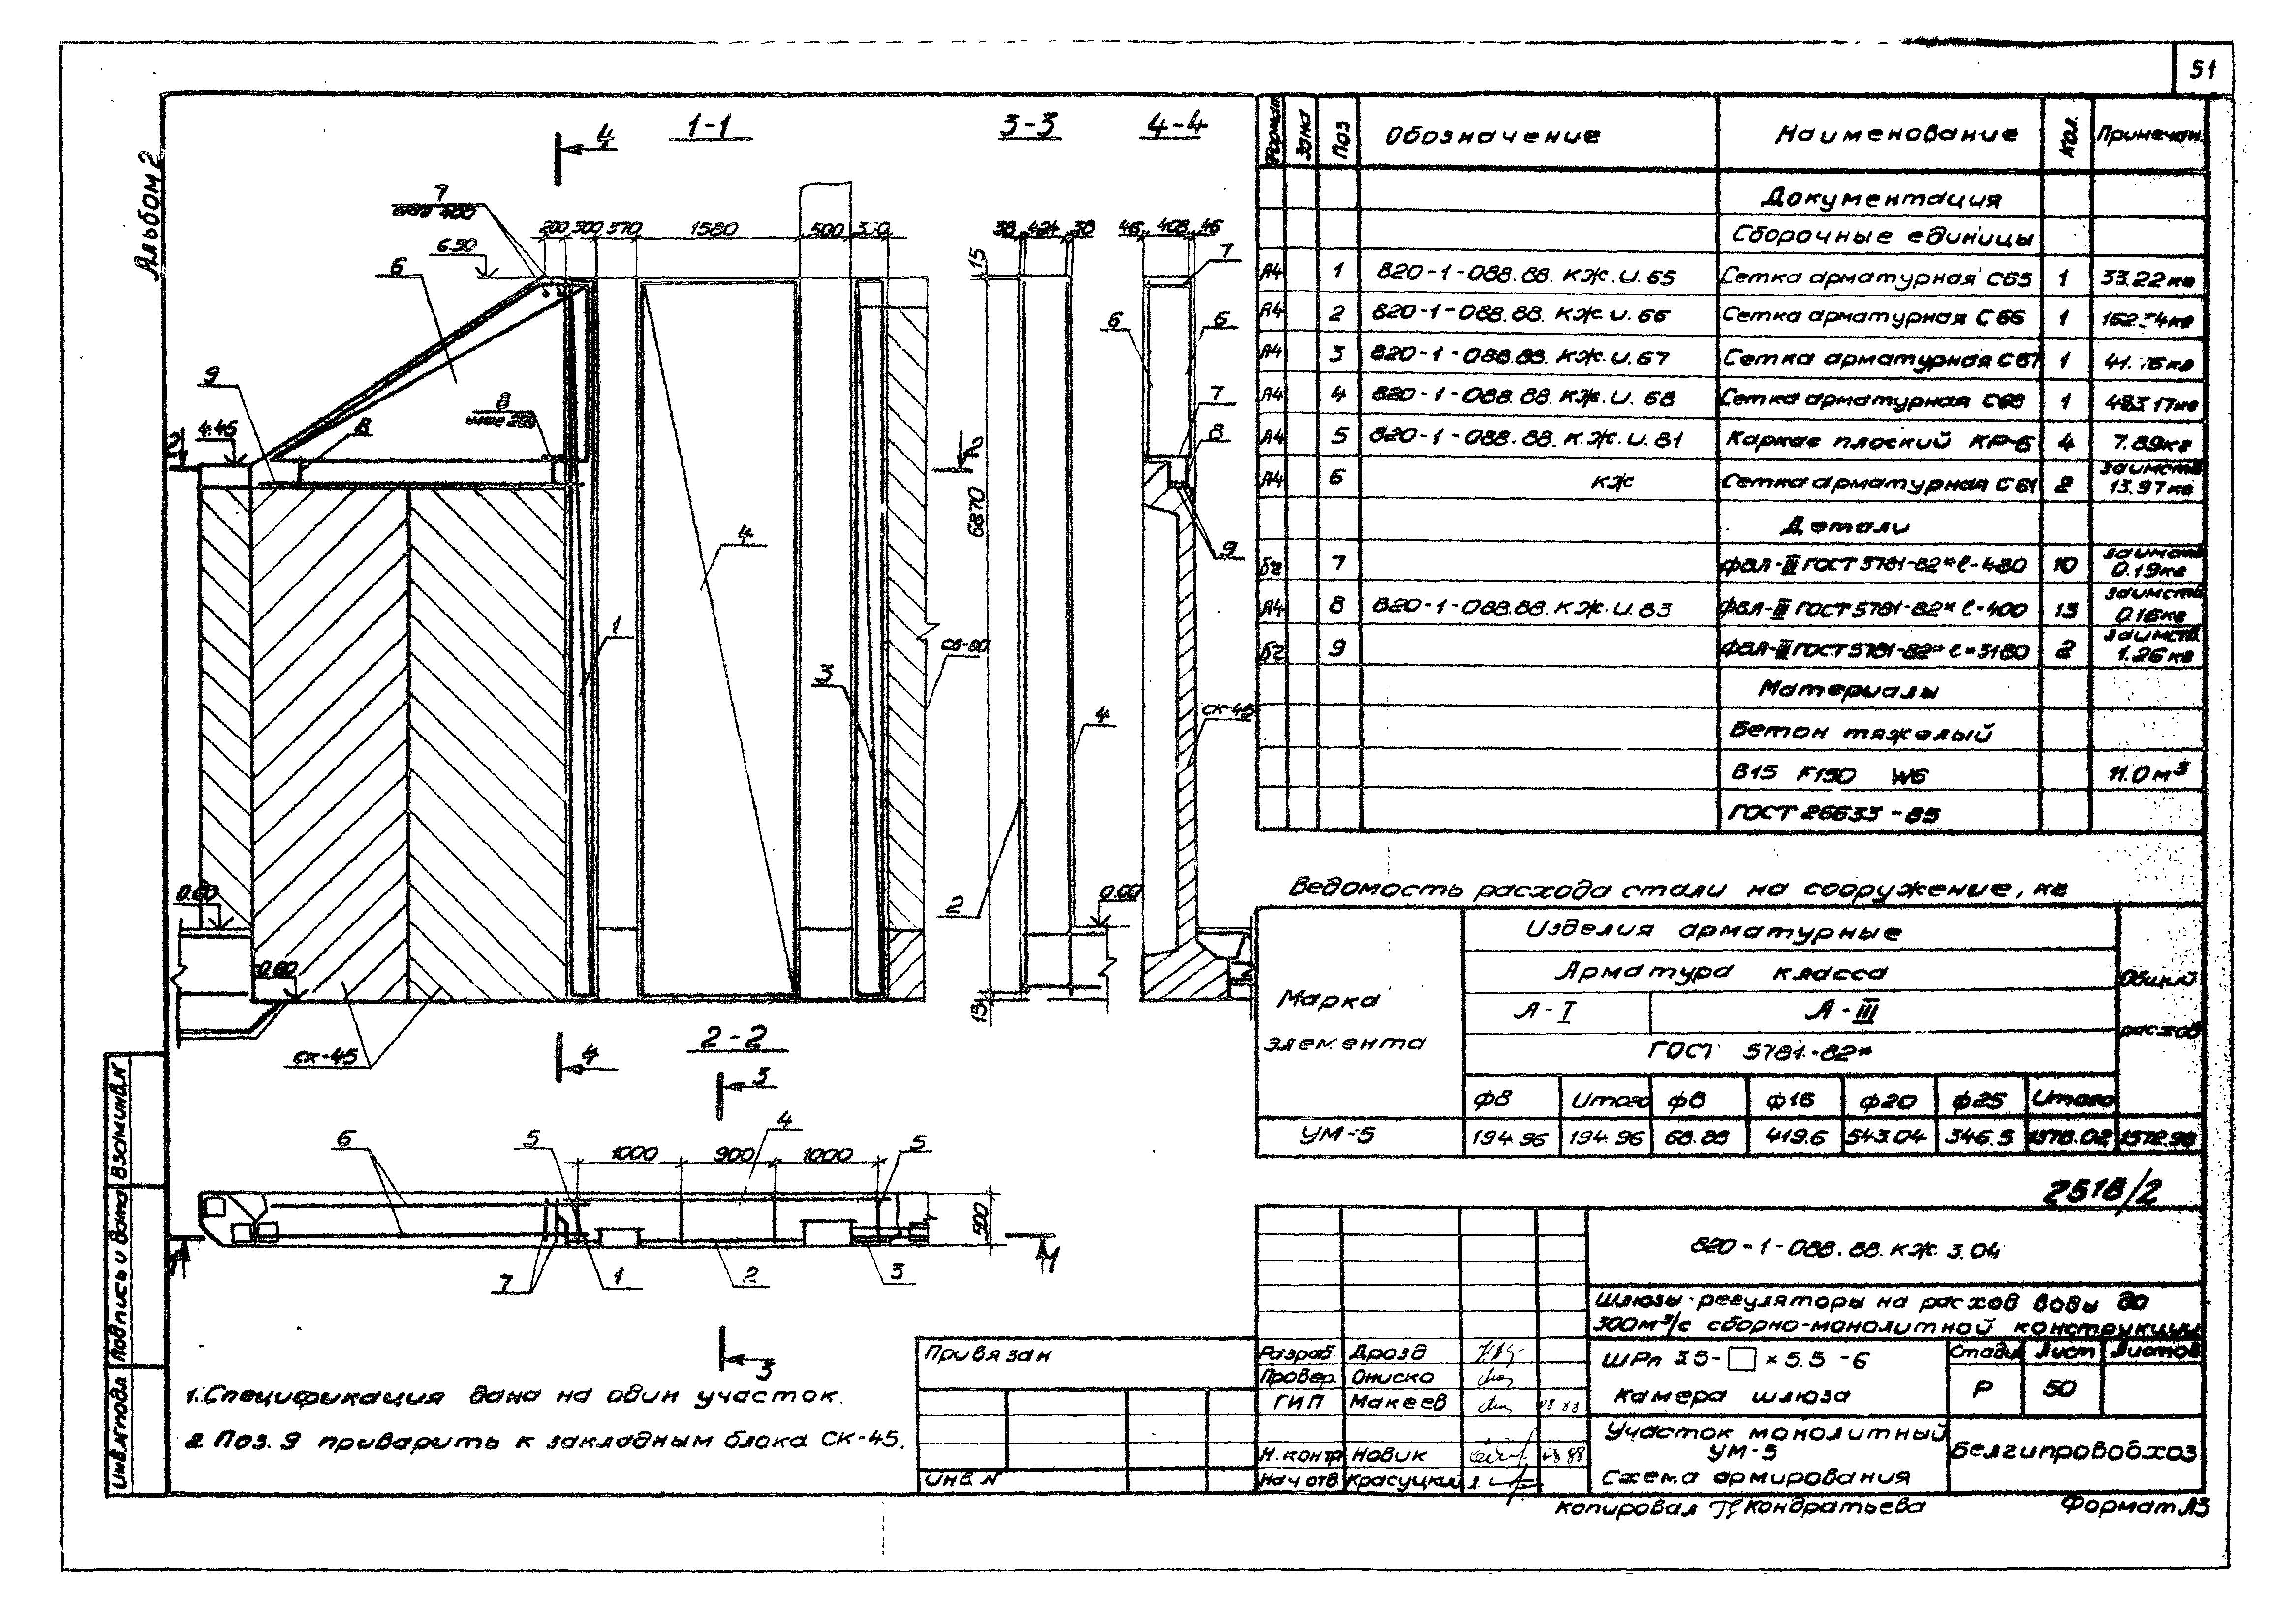 51
Альбом 2
1-1
3-3
4-4
4
7
шаг 400
6.50
200 300 370 1580 500
38 424 38
46 408 46
15
7
6
6
6
9
4.45
8
8
2
2
7
8
9
6870
4
1
3
СК-45
4
2
0.00
0.60
13
СК-45
4
2-2
3
4
6
5
1000 900 1000
5
500
6
1
1
7
1
2
3
3
1. Спецификация дана на один участок.
2 Поз. 9 приварить к закладным блока СК-45.
Формат Зона Поз Обозначение Наименование Кол. Примечан.
Документация
Сборочные единицы
А4 1 820-1-088.88.КЖ.И.65 Сетка арматурная С65 1 33.22кг
А4 2 820-1-088.88.КЖ.И.66 Сетка арматурная С66 1
А4 3 820-1-088.88.КЖ.И.67 Сетка арматурная С67 1
А4 4 820-1-088.88.КЖ.И.68 Сетка арматурная С68 1 483.17кг
А4 5 820-1-088.88.КЖ.И.81 Каркас плоский КР-6 4 7.89кг
А4 6 КЖ Сетка арматурная С61 2 заимств. 13.97кг
Детали
БЧ 7 ф8А-III ГОСТ 5781-82* ℓ-480 10 заимств 0.19кг
А4 8 820-1-088.88.КЖ.И.83 ф8А-III ГОСТ 5781-82* ℓ=400 13 заимств 0.16кг
БЧ 9 ф8А-III ГОСТ 5781-82* ℓ=3180 2 заимств. 1.26кг
Материалы
Бетон тяжелый
В15 F150 W6 11.0м³
ГОСТ 26633-85
Ведомость расхода стали на сооружение, кг
Марка элемента
Изделия арматурные
Арматура класса
Общий расход
А-I А-III
ГОСТ 5781-82*
ф8 Итого ф8 ф16 ф20 ф25 Итого
УМ-5 194.96 194.96 68.88 419.6 543.04 346.5 1378.02 1572.98
2518/2
820-1-088.88.КЖ 3.04
Шлюзы-регуляторы на расход воды до
300м³/с сборно-монолитной конструкции
ШРп 3.5-□×5.5-6
Камера шлюза
Стадия Лист Листов
Р 50
Участок монолитный
УМ-5
Схема армирования
Белгипроводхоз
Разраб. Дрозд
Провер. Ониско
ГИП Макеев
Н.контр Новик
Нач отв Красуцкий
Привязан
Инв. N
Инв.N подл Подпись и дата Взам инв.N
Копировал Кондратьева
Формат А3